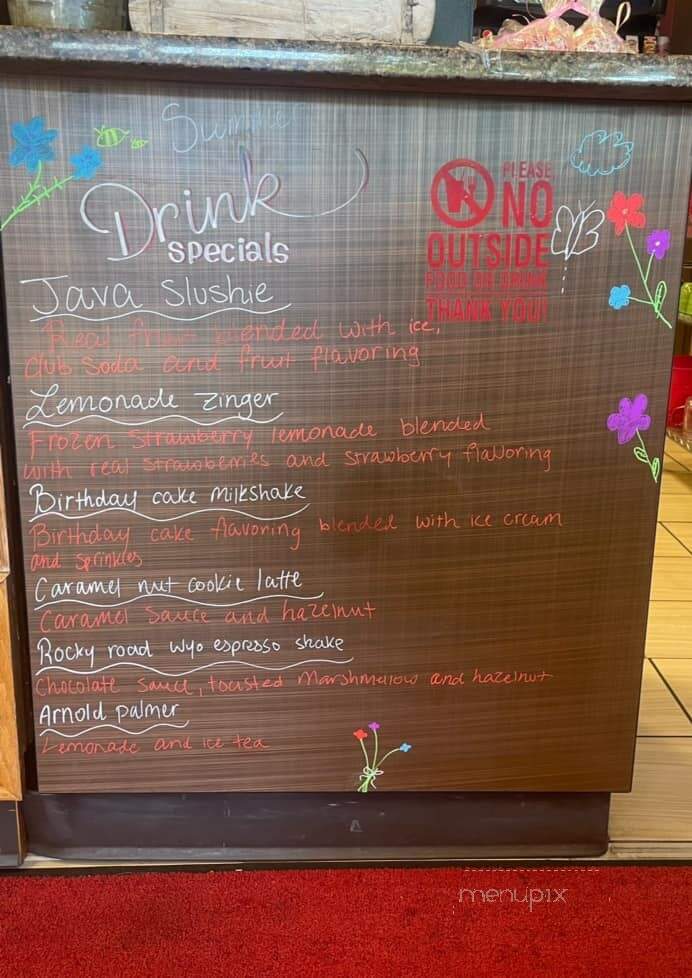 Summer
Drink
specials
PLEASE
NO
OUTSIDE
FOOD OR DRINK
THANK YOU!
Java Slushie
Real fruit blended with ice,
Club Soda and fruit flavoring
Lemonade Zinger
Frozen Strawberry lemonade blended
with real strawberries and strawberry flavoring
Birthday cake milkshake
Birthday cake flavoring blended with ice cream
and sprinkles
Caramel nut cookie latte
Caramel Sauce and hazelnut
Rocky road wyo espresso shake
Chocolate sauce, toasted Marshmallow and hazelnut
Arnold palmer
Lemonade and ice tea
menupix